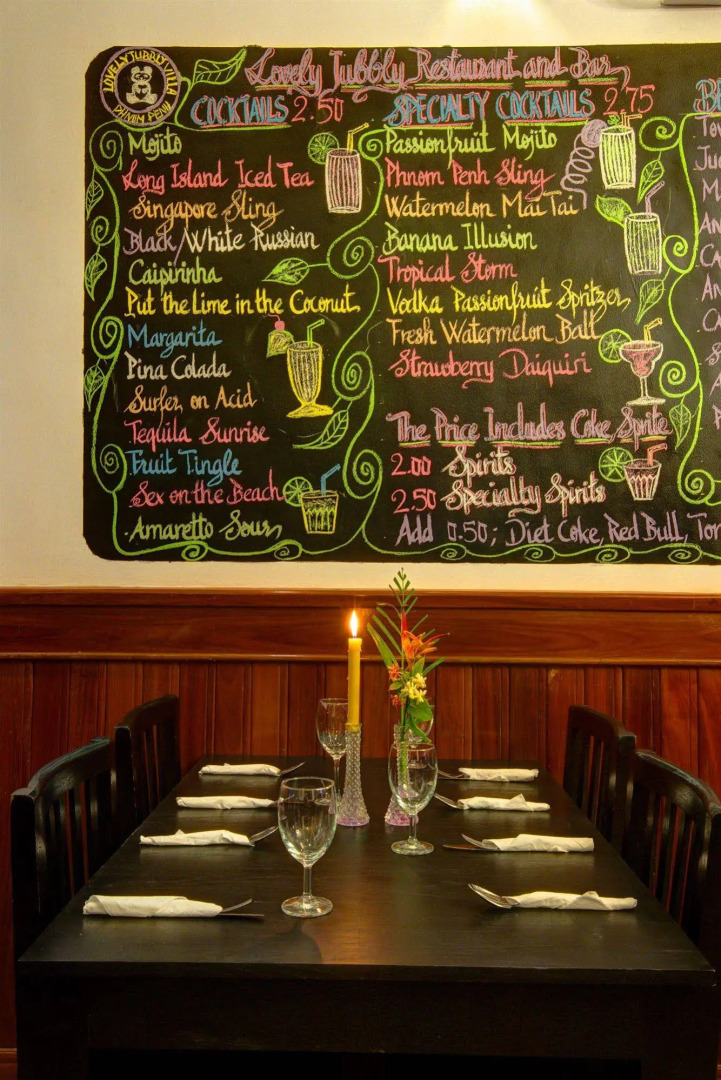 LOVELY JUBBLY VILLA
PHNOM PENH
Lovely Jubbly Restaurant and Bar
COCKTAILS 2.50
Mojito
Long Island Iced Tea
Singapore Sling
Black/White Russian
Caipirinha
Put the Lime in the Coconut
Margarita
Pina Colada
Surfer on Acid
Tequila Sunrise
Fruit Tingle
Sex on the Beach
Amaretto Sour
SPECIALTY COCKTAILS 2.75
Passionfruit Mojito
Phnom Penh Sling
Watermelon Mai Tai
Banana Illusion
Tropical Storm
Vodka Passionfruit Spritzer
Fresh Watermelon Ball
Strawberry Daiquiri
The Price Includes Coke Sprite
2.00 Spirits
2.50 Specialty Spirits
Add 0.50; Diet Coke, Red Bull,